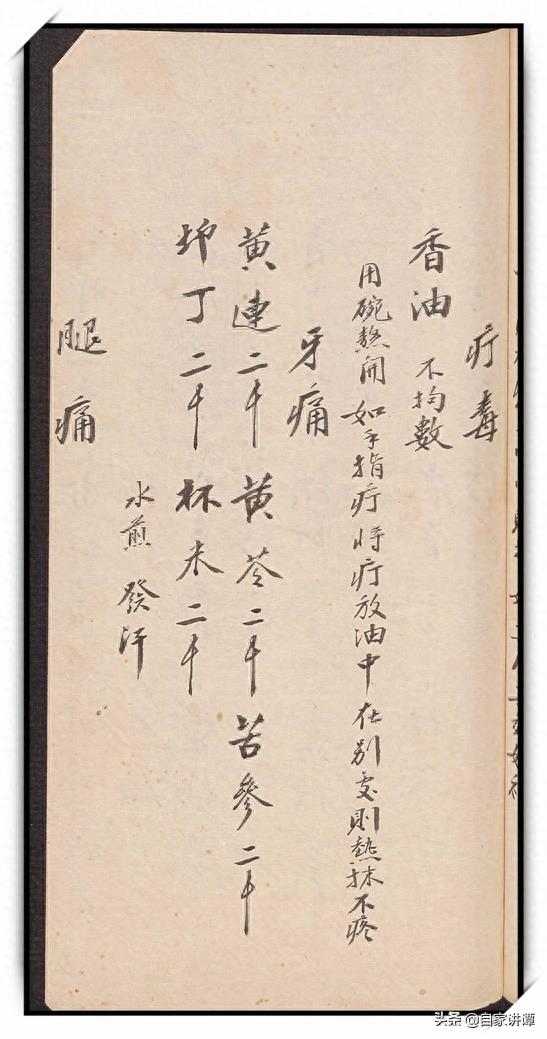 疔毒
香油 不拘數
用碗熬開 如手指疔將疔放油中 在别處則熱抹不疼
牙痛
黄連二千 黄芩二千 苦參二千
丁二千 二千
水煎 發汗
腿痛
头条 @自家讲谭